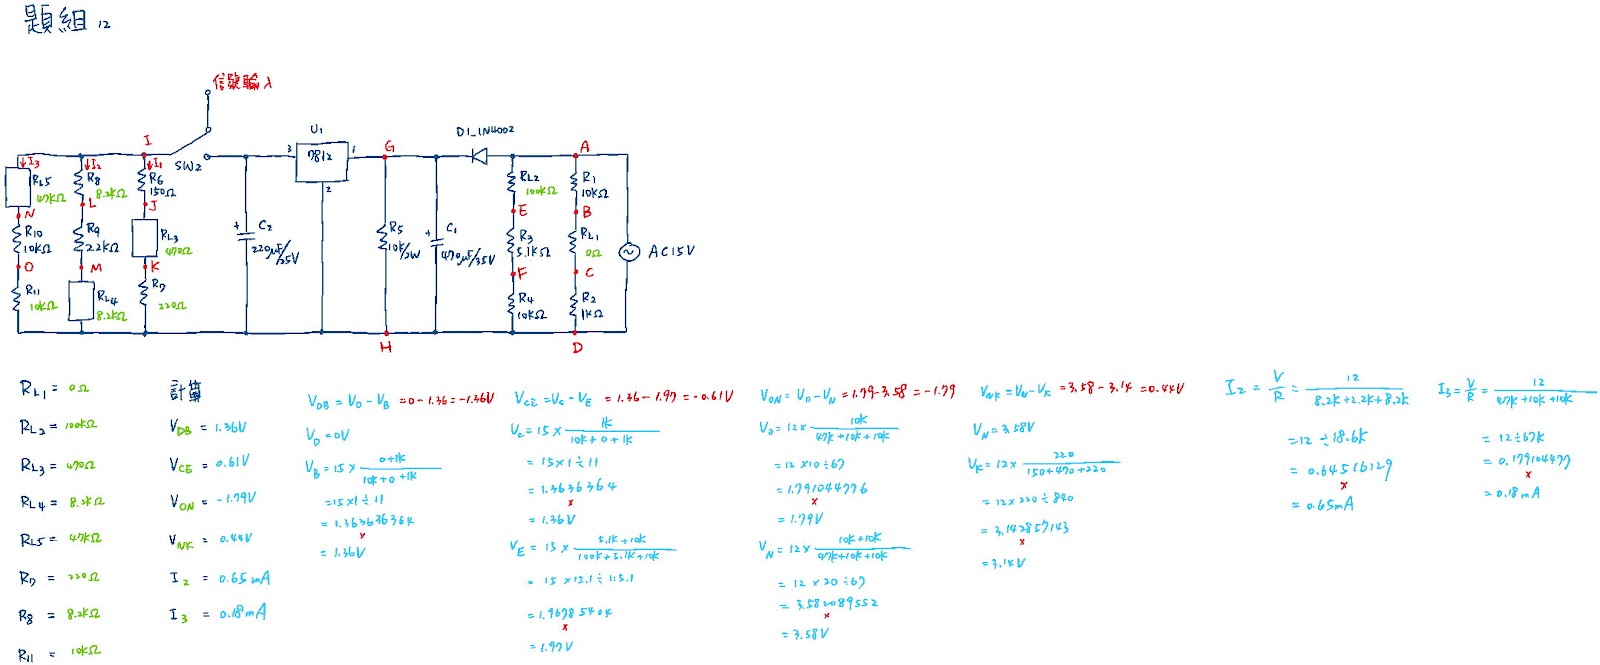 題組 12
信號輸入
I
SW2
3
U1
7812
1
2
G
D1_1N4002
A
I3
RL5
47KΩ
N
R10
10KΩ
O
R11
10KΩ
I2
R8
8.2KΩ
L
R9
2.2KΩ
M
RL4
8.2KΩ
I1
R6
150Ω
J
RL3
470Ω
K
R7
220Ω
+
C2
220μF/25V
R5
10K/2W
+
C1
470μF/35V
RL2
100KΩ
E
R3
5.1KΩ
F
R4
10KΩ
R1
10KΩ
B
RL1
0Ω
C
R2
1KΩ
AC15V
H
D
RL1 = 0Ω
RL2 = 100KΩ
RL3 = 470Ω
RL4 = 8.2KΩ
RL5 = 47KΩ
R7 = 220Ω
R8 = 8.2KΩ
R11 = 10KΩ
計算
VDB = 1.36V
VCE = 0.61V
VON = -1.79V
VNK = 0.44V
I2 = 0.65mA
I3 = 0.18mA
VDB = VD - VB = 0 - 1.36 = -1.36V
VD = 0V
VB = 15 × (0+1K)/(10K+0+1K)
= 15×1÷11
= 1.363636364
×
= 1.36V
VCE = VC - VE = 1.36 - 1.97 = -0.61V
VC = 15 × 1K/(10K+0+1K)
= 15×1÷11
= 1.3636364
×
= 1.36V
VE = 15 × (5.1K+10K)/(100K+5.1K+10K)
= 15 × 15.1 ÷ 115.1
= 1.96785404
×
= 1.97V
VON = VO - VN = 1.79 - 3.58 = -1.79
VO = 12 × 10K/(47K+10K+10K)
= 12 × 10 ÷ 67
= 1.791044776
×
= 1.79V
VN = 12 × (10K+10K)/(47K+10K+10K)
= 12 × 20 ÷ 67
= 3.582089552
×
= 3.58V
VNK = VN - VK = 3.58 - 3.14 = 0.44V
VN = 3.58V
VK = 12 × 220/(150+470+220)
= 12 × 220 ÷ 840
= 3.142857143
×
= 3.14V
I2 = V/R = 12/(8.2K+2.2K+8.2K)
= 12 ÷ 18.6K
= 0.64516129
×
= 0.65mA
I3 = V/R = 12/(47K+10K+10K)
= 12 ÷ 67K
= 0.179104477
×
= 0.18mA